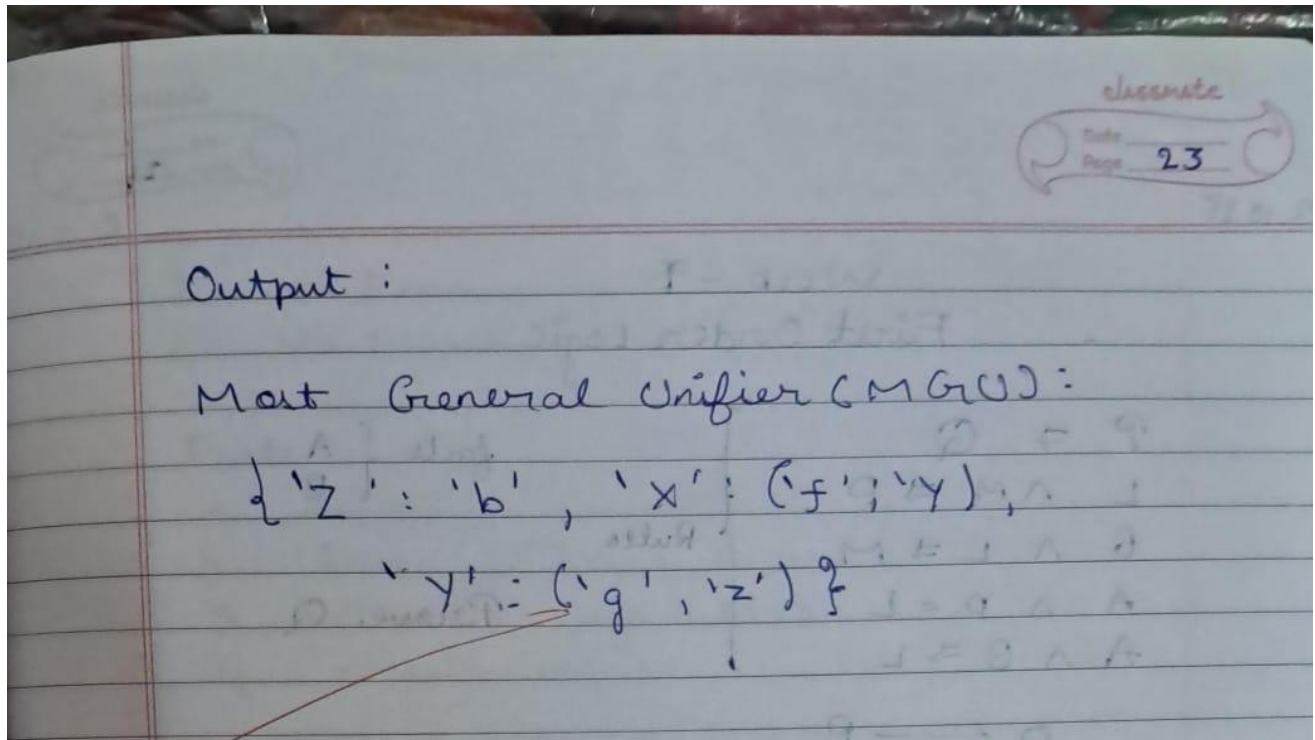 classmate
Date
Page 23
Output :
Most General Unifier (MGU) :
{ 'Z' : 'b' , 'x' : ('f' , 'Y') ,
'y' : ('g' , 'z') }